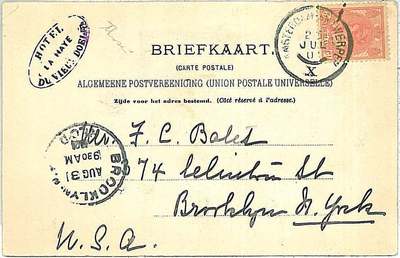 HOTEL
LA HAYE
DU VIEUX DOELEN
BRIEFKAART.
(CARTE POSTALE)
ALGEMEENE POSTVEREENIGING (UNION POSTALE UNIVERSELLE)
Zijde voor het adres bestemd. (Côté réservé à l'adresse.)
AMSTERDAM-ANTWERPEN
JUL
X
BROOKLYN, N.Y.
AUG 31
930AM
F. C. Bales
74 Clinton St
Brooklyn N. York
U. S. A.